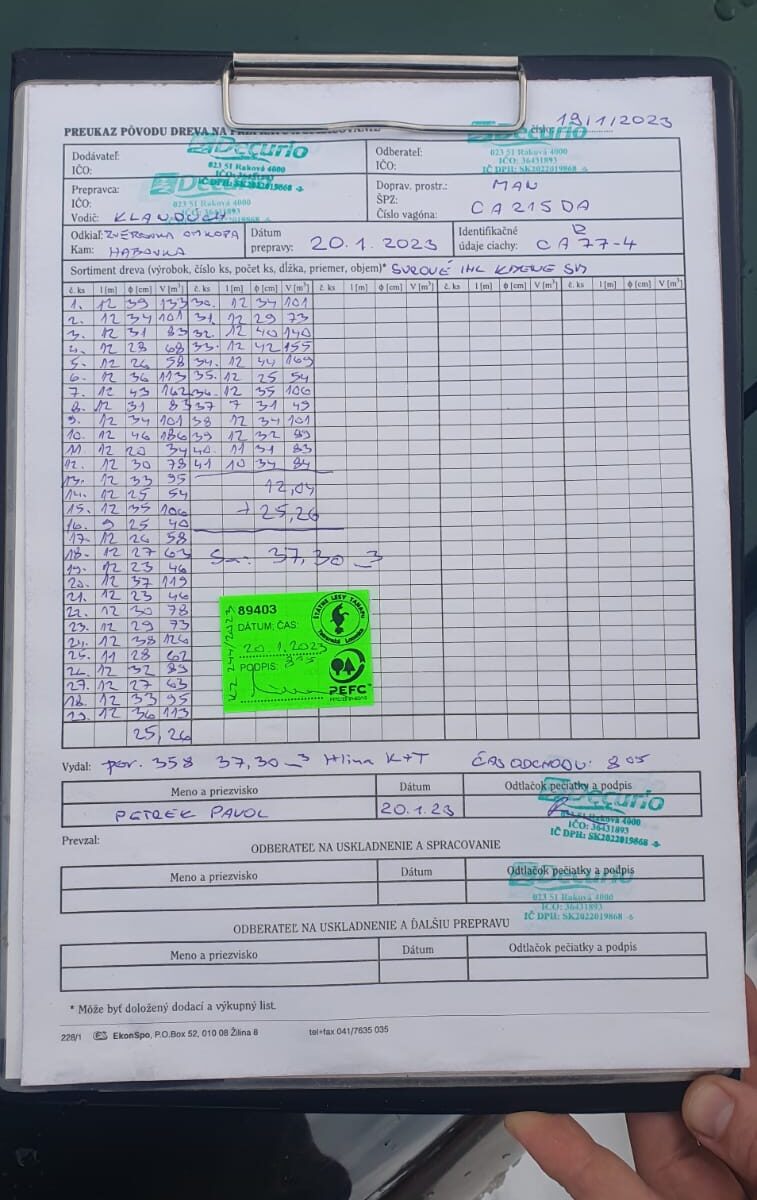 19/1/2023
PREUKAZ PÔVODU DREVA NA
Dodávateľ:
IČO:
Decurio
023 51 Raková 4000
IČO: 36431893
IČ DPH: SK2022019868 -6
Odberateľ:
IČO:
Decurio
023 51 Raková 4000
IČO: 36431893
IČ DPH: SK2022019868 -6
Prepravca:
IČO:
Vodič: KLANDUCH
023 51 Raková 4000
36431893
Doprav. prostr.: MAN
ŠPZ:
Číslo vagóna: CA215DA
Odkiaľ: ZVEROVKA
Kam: HABOVKA
Dátum
prepravy: 20.1.2023
Identifikačné
údaje ciachy: CA 77-4
Sortiment dreva (výrobok, číslo ks, počet ks, dĺžka, priemer, objem)* SUROVÉ IHL
č. ks l [m] ϕ [cm] V [m³] č. ks l [m] ϕ [cm] V [m³] č. ks l [m] ϕ [cm] V [m³] č. ks l [m] ϕ [cm] V [m³] č. ks l [m] ϕ [cm] V [m³]
1. 12 39 133 30. 12 34 101
2. 12 34 101 31. 12 29 73
3. 12 31 83 32. 12 40 140
4. 12 28 68 33. 12 42 155
5. 12 26 58 34. 12 44 169
6. 12 36 113 35. 12 25 54
7. 12 43 162 36. 12 35 106
8. 12 31 83 37 7 31 49
9. 12 34 101 38 12 34 101
10. 12 46 186 39 12 32 89
11 12 20 34 40. 11 31 83
12. 12 30 78 41 10 34 84
13. 12 33 95
14. 12 25 54 12,04
15. 12 35 106 + 25,26
16. 9 25 40
17. 12 26 58
18. 12 27 63 37,30
19. 12 23 46
20. 12 37 119
21. 12 23 46
22. 12 30 78
23. 12 29 73
24. 12 38 126
25. 11 28 62
26. 12 32 89
27. 12 27 63
28. 12 33 95
29. 12 36 113
25,26
89403
DÁTUM, ČAS:
20.1.2023
PODPIS: 8 05
ŠTÁTNE LESY TANAPU
Tatranská Lomnica
PEFC
Vydal: por. 358 37,30 Hlina K+T ČAS ODCHODU: 8 05
Meno a priezvisko Dátum Odtlačok pečiatky a podpis
PETREK PAVOL 20.1.23
Decurio
023 51 Raková 4000
IČO: 36431893
IČ DPH: SK2022019868 -6
Prevzal:
ODBERATEĽ NA USKLADNENIE A SPRACOVANIE
Meno a priezvisko Dátum Odtlačok pečiatky a podpis
Decurio
023 51 Raková 4000
IČO: 36431893
IČ DPH: SK2022019868 -6
ODBERATEĽ NA USKLADNENIE A ĎALŠIU PREPRAVU
Meno a priezvisko Dátum Odtlačok pečiatky a podpis
* Môže byť doložený dodací a výkupný list.
228/1 EkonSpo, P.O.Box 52, 010 08 Žilina 8 tel+fax 041/7635 035